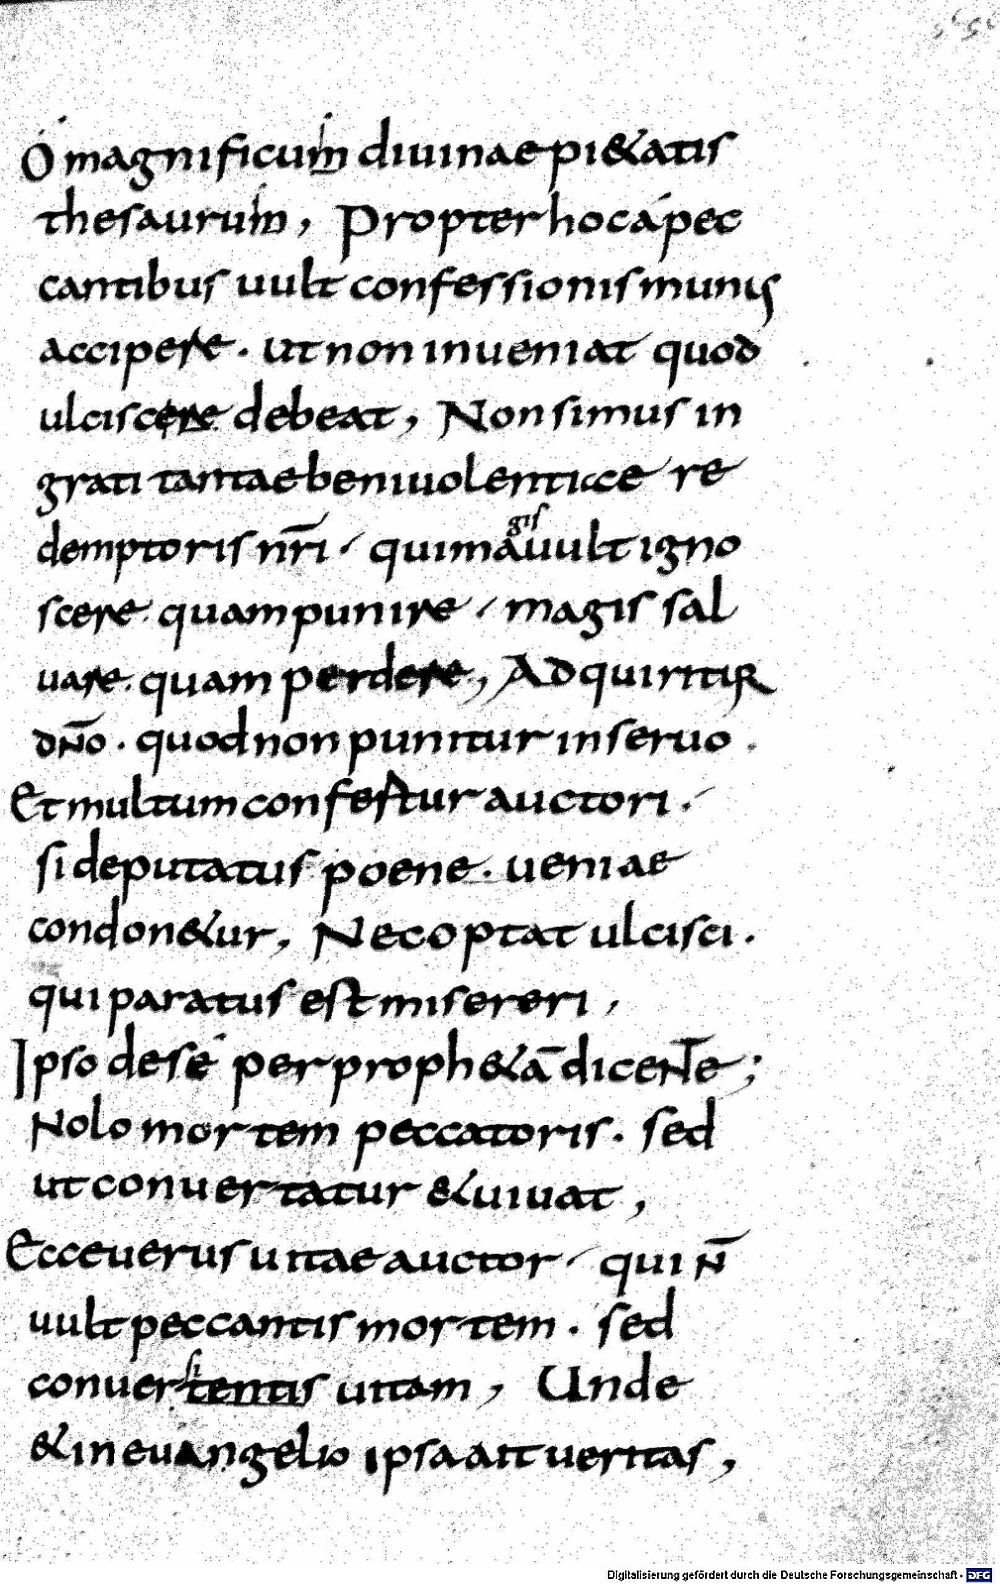 Ó magnificum diuinae pi&atis
thesaurum, Propter hoc á pec
cantibus uult confessionis munus
accipere · ut non inueniat quod
ulciscere debeat, Non simus in
grati tantae beniuolentiae re
demptoris nr̄i / qui magis uult igno
scere · quam punire / magis sal
uare · quam perdere, Adquiritur
dn̄o · quod non punitur in seruo .
Et multum confertur auctori ·/
si deputatus poene · ueniae
condon&ur, Nec optat ulcisci ·
qui paratus est misereri,
Ipso de sé per proph&ā dicente;
Nolo mortem peccatoris · sed
ut conuertatur & uiuat,
Ecce uerus uitae auctor / qui n̄
uult peccantis mortem · sed
conuertentis uitam, Unde
& in euangelio ipsa ait ueritas,
Digitalisierung gefördert durch die Deutsche Forschungsgemeinschaft - DFG